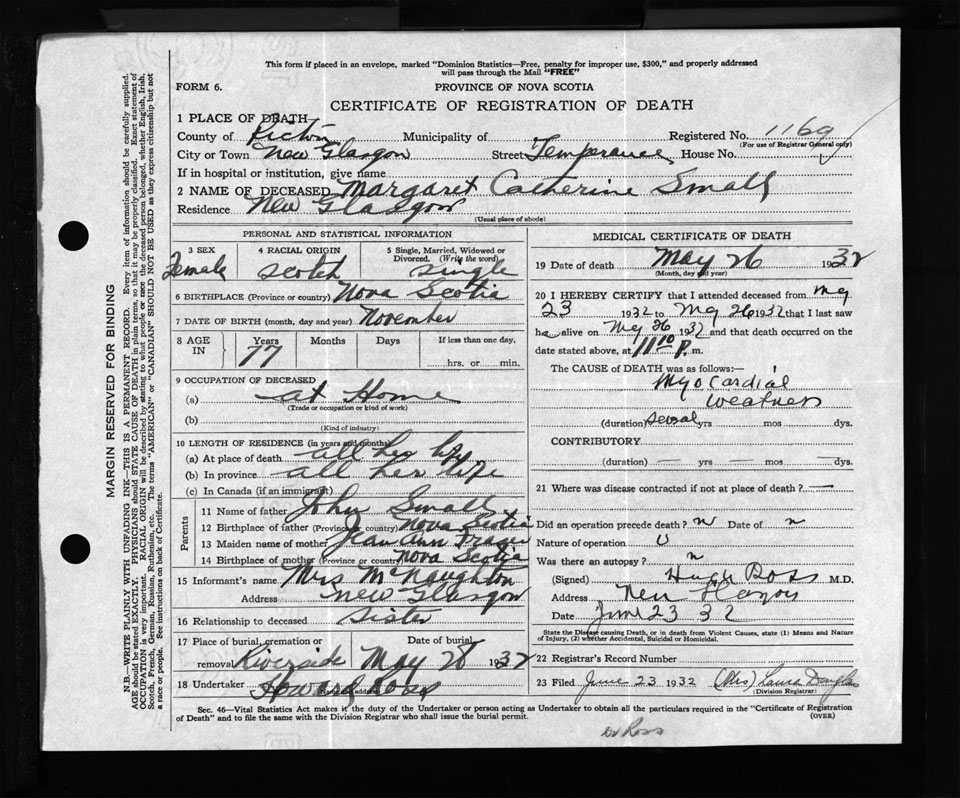 This form if placed in an envelope, marked "Dominion Statistics—Free, penalty for improper use, $300," and properly addressed
will pass through the Mail "FREE"
FORM 6.
PROVINCE OF NOVA SCOTIA
CERTIFICATE OF REGISTRATION OF DEATH
1 PLACE OF DEATH
County of Pictou Municipality of Registered No. 1169
(For use of Registrar General only)
City or Town New Glasgow Street Temperance House No.
If in hospital or institution, give name
2 NAME OF DECEASED Margaret Catherine Small
Residence New Glasgow
(Usual place of abode)
PERSONAL AND STATISTICAL INFORMATION
3 SEX 4 RACIAL ORIGIN 5 Single, Married, Widowed or
Divorced. (Write the word)
Female Scotch Single
6 BIRTHPLACE (Province or country) Nova Scotia
7 DATE OF BIRTH (month, day and year) November
8 AGE IN Years Months Days If less than one day,
77 hrs. or min.
9 OCCUPATION OF DECEASED
(a) at Home
(Trade or occupation or kind of work)
(b)
(Kind of industry)
10 LENGTH OF RESIDENCE (in years and months)
(a) At place of death all her life
(b) In province all her life
(c) In Canada (if an immigrant)
Parents
11 Name of father John Small
12 Birthplace of father (Province or country) Nova Scotia
13 Maiden name of mother Jean Ann Fraser
14 Birthplace of mother (Province or country) Nova Scotia
15 Informant's name Mrs McNaughton
Address New Glasgow
16 Relationship to deceased Sister
17 Place of burial, cremation or Date of burial
removal Riverside May 28 1932
18 Undertaker Howard Ross
MEDICAL CERTIFICATE OF DEATH
19 Date of death May 26 1932
(Month, day and year)
20 I HEREBY CERTIFY that I attended deceased from My
23 1932 to My 26 1932 that I last saw
h alive on My 26 1932 and that death occurred on
the date stated above, at 11 10 P. m.
The CAUSE OF DEATH was as follows:—
Myocardial
weakness
(duration) several yrs mos dys.
CONTRIBUTORY
(duration) yrs mos dys.
21 Where was disease contracted if not at place of death? —
Did an operation precede death? n Date of n
Nature of operation
Was there an autopsy? n
(Signed) Hugh Ross M.D.
Address New Glasgow
Date June 23 32
State the Disease causing Death, or in death from Violent Causes, state (1) Means and Nature
of Injury, (2) whether Accidental, Suicidal or Homicidal.
22 Registrar's Record Number
23 Filed June 23 1932 (Mrs) Laura Douglas
(Division Registrar)
Sec. 46—Vital Statistics Act makes it the duty of the Undertaker or person acting as Undertaker to obtain all the particulars required in the "Certificate of Registration
of Death" and to file the same with the Division Registrar who shall issue the burial permit.
(OVER)
Dr Ross
MARGIN RESERVED FOR BINDING
N.B.—WRITE PLAINLY WITH UNFADING INK—THIS IS A PERMANENT RECORD. Every item of information should be carefully supplied.
AGE should be stated EXACTLY. PHYSICIANS should STATE CAUSE OF DEATH in plain terms, so that it may be properly classified. Exact statement of
OCCUPATION is very important. RACIAL ORIGIN will be described by stating to what people or race the deceased person belonged, whether English, Irish,
Scotch, French, German, Russian, Ruthenian, etc. The terms "AMERICAN" or "CANADIAN" SHOULD NOT BE USED as they express citizenship but not
a race or people. See instructions on back of Certificate.